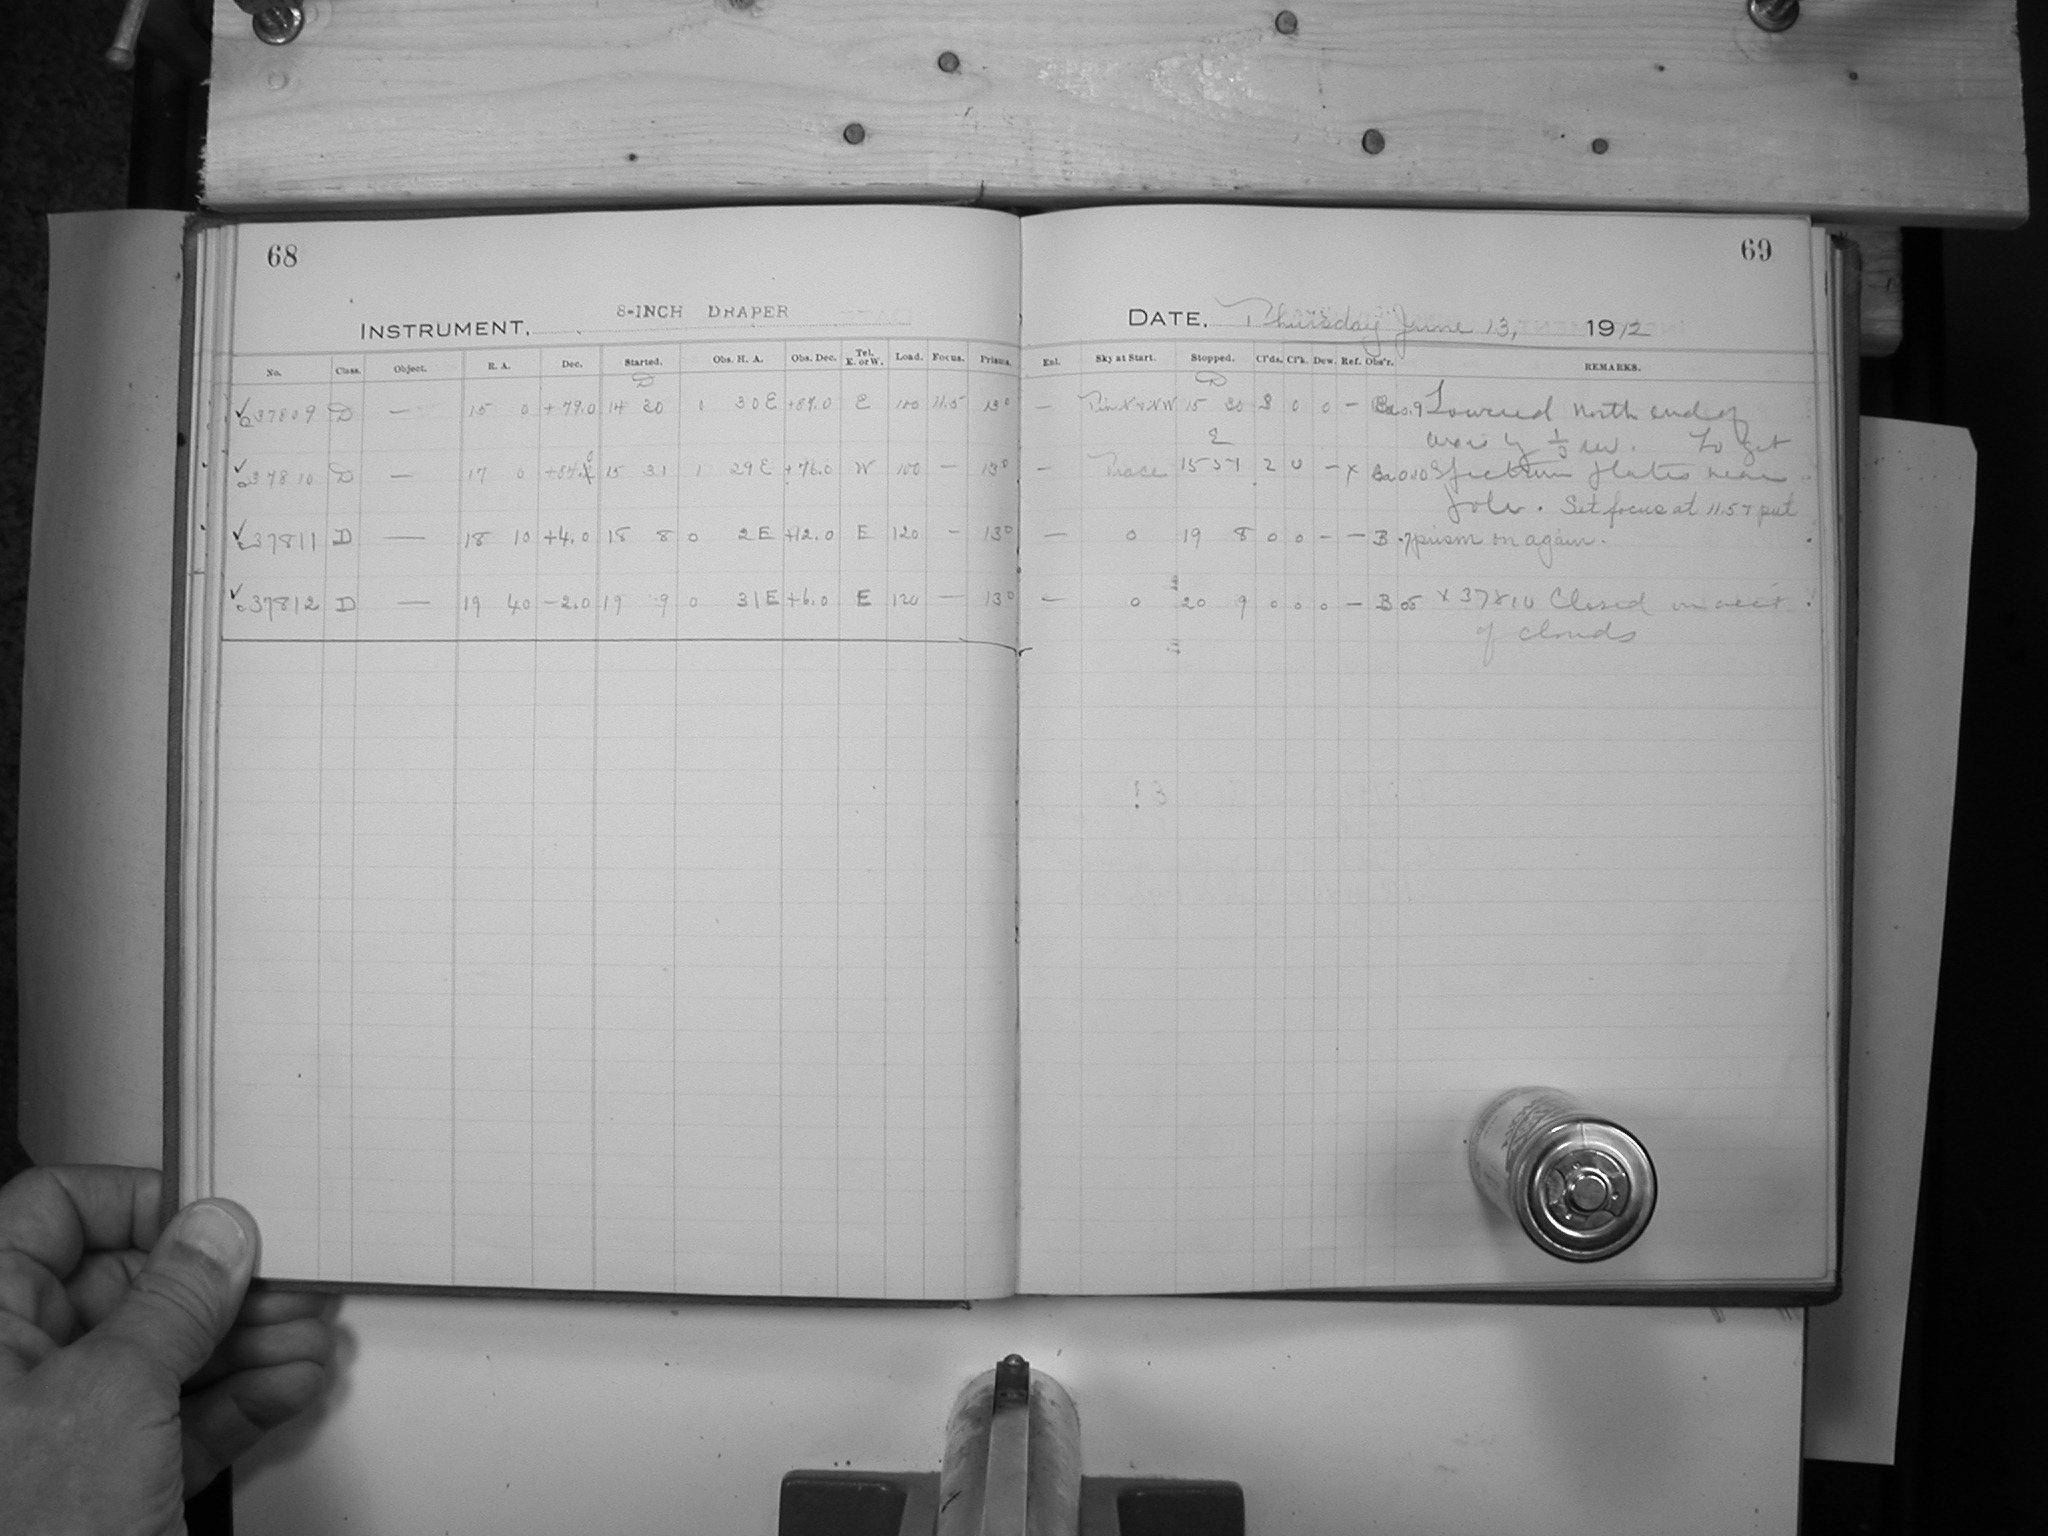 68
8-INCH DRAPER
INSTRUMENT,
No. Class. Object. R. A. Dec. Started. Obs. H. A. Obs. Dec. Tel. E. or W. Load. Focus. Prisms.
37809 D — 15 0 +79.0 14 30 0 30 E +87.0 E 100 11.5 13°
37810 D — 17 0 15 31 1 29 E +76.0 W 100 — 13°
37811 D — 18 10 +4.0 18 8 0 2 E +12.0 E 120 — 13°
37812 D — 19 40 -2.0 19 9 0 31 E +6.0 E 120 — 13°
69
DATE, Thursday June 13, 1912
Enl. Sky at Start. Stopped. Cl'ds. Cl'k. Dew. Ref. Obs'r. REMARKS.
— 15 30 0 0 — Lowered north end of
1/3 rev. To get
— Trace 15 2 0 — x Spectrum plates near
pole. Set focus at 11.57 put
— 0 19 8 0 0 — — B .7 prism on again.
— 0 20 9 0 0 0 — B 05 x 37810 Closed on acct.
of clouds